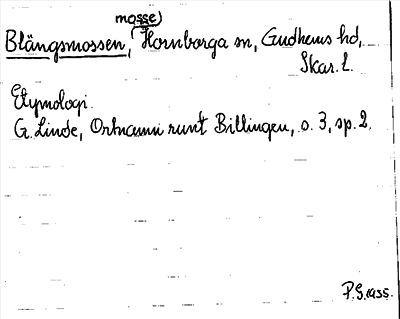 mosse)
Blängsmossen, Hornborga sn, Gudhems hd,
Skar. l.
Etymologi.
G. Linde, Ortnamn runt Billingen, s. 3, sp. 2.
P.G. 1935.